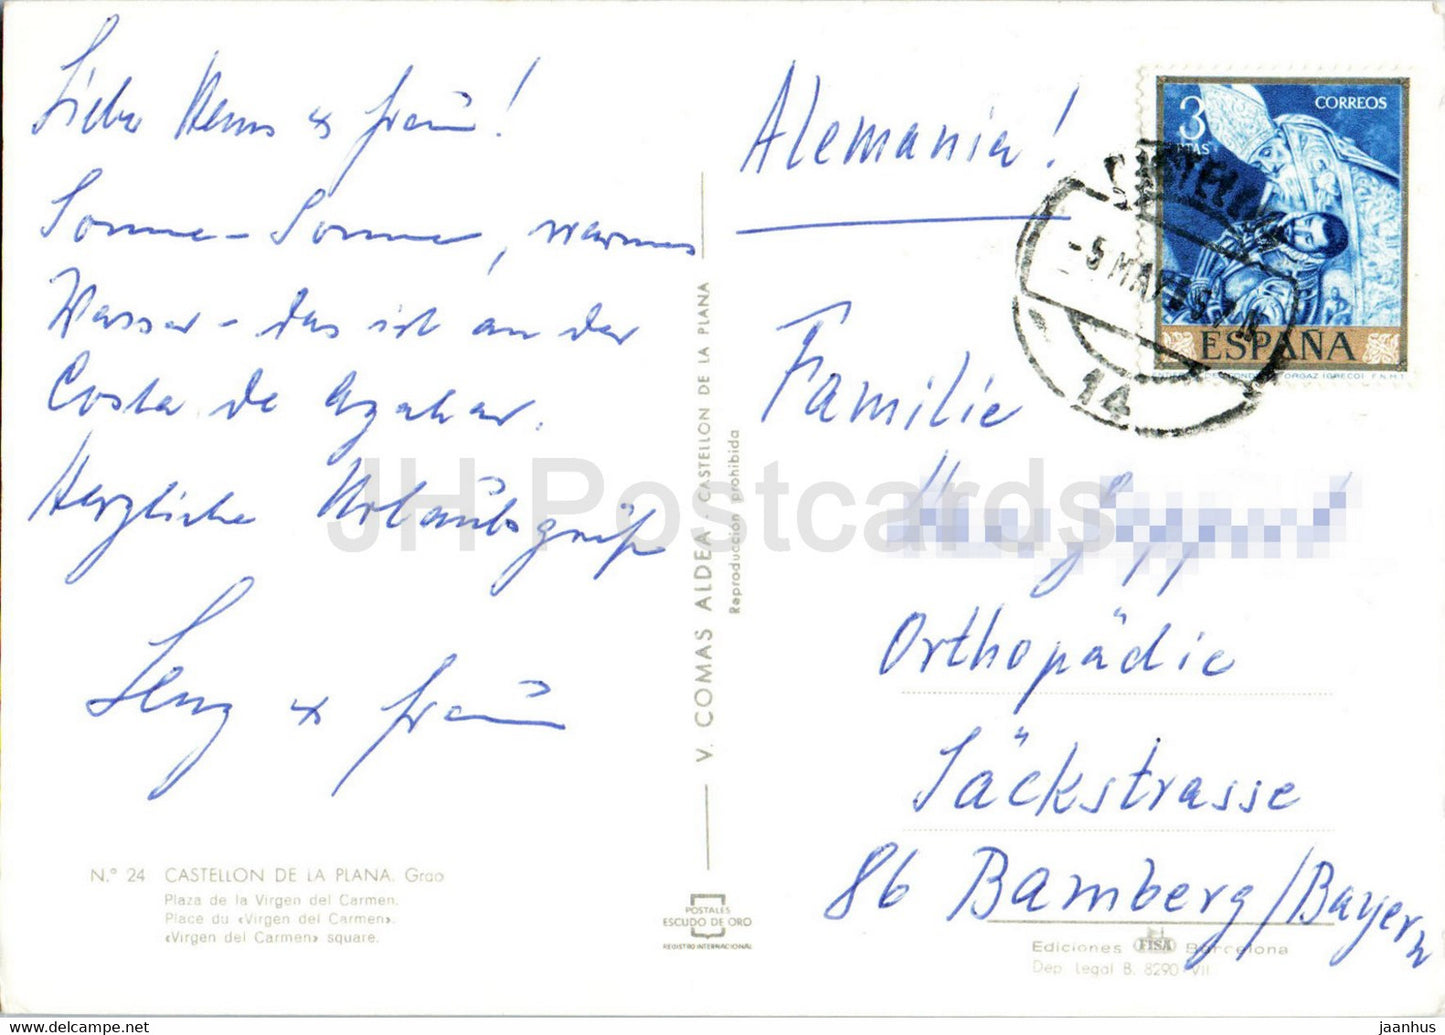 Liebe Henns & Frau!
Sonne-Sonne, warmes
Wasser - das ist an der
Costa de Azahar.
Herzliche Urlaubsgrüße
Lenz & Frau
N.º 24 CASTELLON DE LA PLANA. Grao
Plaza de la Virgen del Carmen.
Place du «Virgen del Carmen».
«Virgen del Carmen» square.
V. COMAS ALDEA - CASTELLON DE LA PLANA
Reproducción prohibida
POSTALES
ESCUDO DE ORO
REGISTRO INTERNACIONAL
Alemania!
3
PTAS
CORREOS
ESPAÑA
CASTELLON
-5 MAY
14
Familie
Orthopädie
Säckstrasse
86 Bamberg/Bayern
Ediciones FISA Barcelona
Dep. Legal B. 8290-VII
JH Postcards
jaanhus © www.delcampe.net